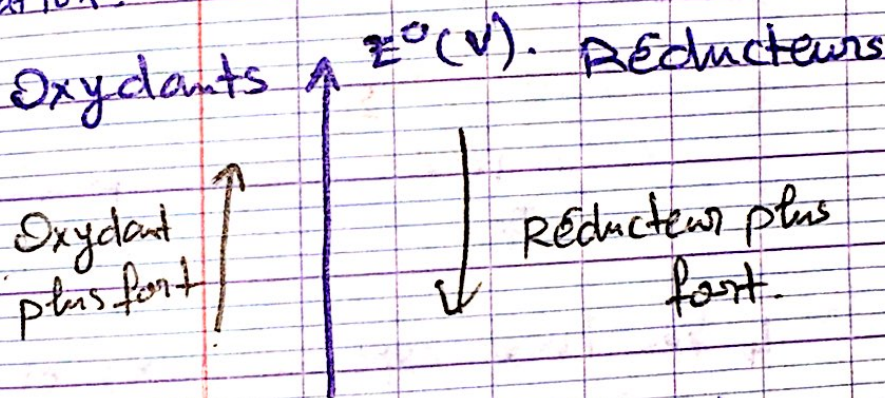 Oxydants E°(V). Réducteurs
Oxydant
plus fort
Réducteur plus
fort.